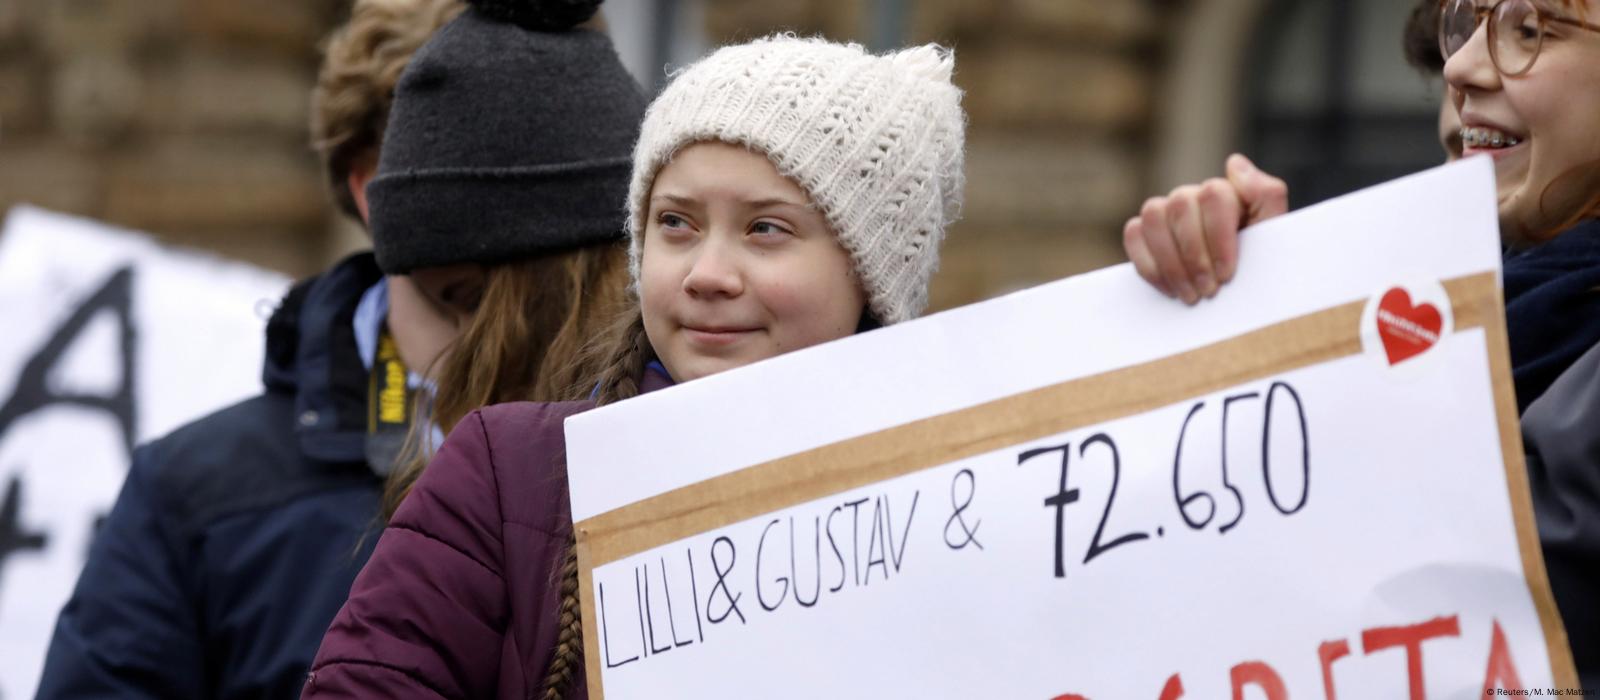 A
Nikon
LILLI & GUSTAV & 72.650
GRETA
© Reuters/M. Mac Matzen